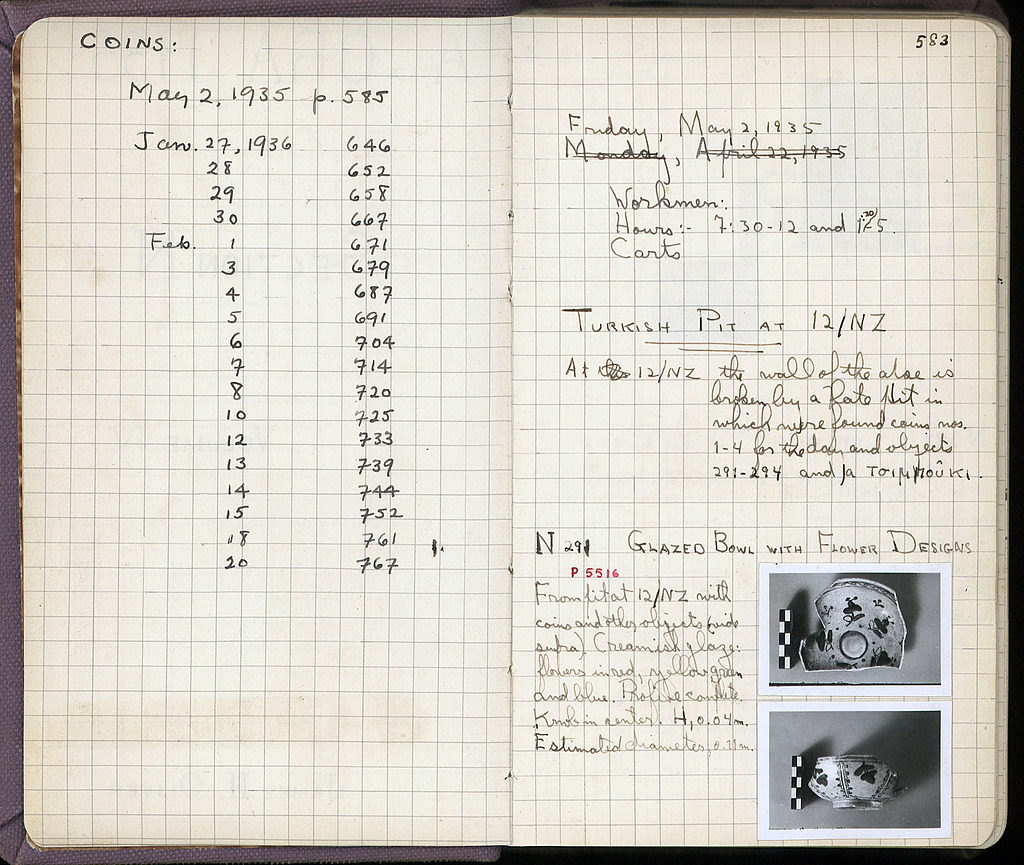 COINS:
May 2, 1935 p. 585
Jan. 27, 1936 646
28 652
29 658
30 667
Feb. 1 671
3 679
4 687
5 691
6 704
7 714
8 720
10 725
12 733
13 739
14 744
15 752
18 761
20 767
583
Friday, May 2, 1935
Monday, April 22, 1935
Workmen:
Hours:- 7:30-12 and 5.
Carts
TURKISH PIT AT 12/NZ
At 12/NZ the wall of the apse is
broken by a late pit in
which were found coins nos.
1-4 for the day and objects
291-294 and a
N 291 GLAZED BOWL WITH FLOWER DESIGNS
P 5516
From pit at 12/NZ with
coins and other objects (vide
supra). Creamish glaze:
flowers in red, yellow green
and blue. Profile complete.
Knob in center. H, 0.04m.
Estimated diameter, 0.11m.